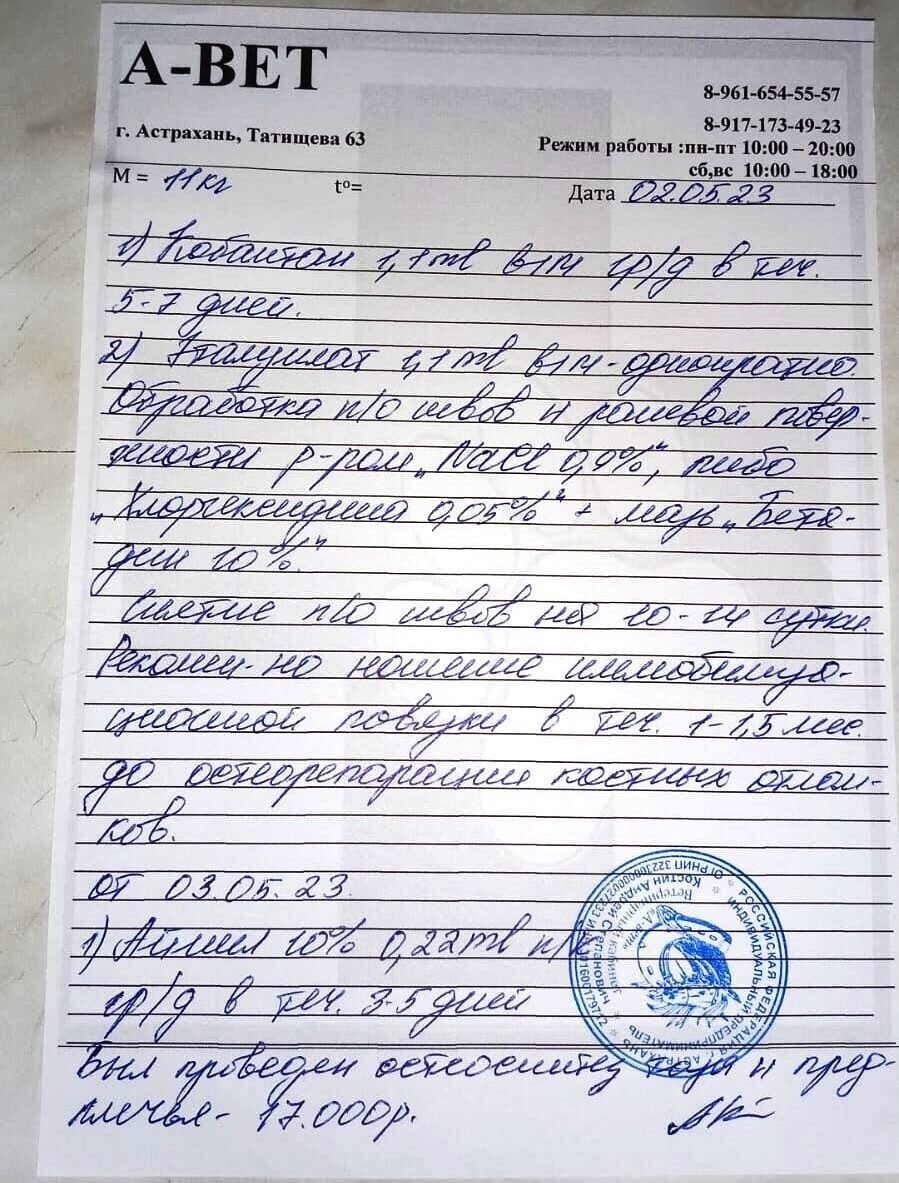 А-ВЕТ
8-961-654-55-57
8-917-173-49-23
г. Астрахань, Татищева 63
Режим работы :пн-пт 10:00 – 20:00
сб,вс 10:00 – 18:00
М = 11кг tº= Дата 02.05.23
1) Кобактан 1,1мл в/м 1р/д в теч.
5-7 дней.
2) 1,1мл в/м - однократно.
Обработка п/о швов и раневой повер-
хности р-ром „NaCl 0,9%", либо
„Хлоргексидина 0,05%" + мазь „Бета-
дин 10%."
Снятие п/о швов на 10-14 сутки.
Рекомен-но ношение иммобилиза-
ционной повязки в теч. 1-1,5 мес.
до остеорепарации костных отлом-
ков.
от 03.05.23.
1) Айнил 10% 0,22мл п/к
1р/д в теч. 3-5 дней
Был проведен остеосинтез таза и пред-
плечья - 17.000р.
РОССИЙСКАЯ ФЕДЕРАЦИЯ Г.АСТРАХАНЬ
ИНДИВИДУАЛЬНЫЙ ПРЕДПРИНИМАТЕЛЬ
Костин Андрей Степанович
Ветеринарный кабинет